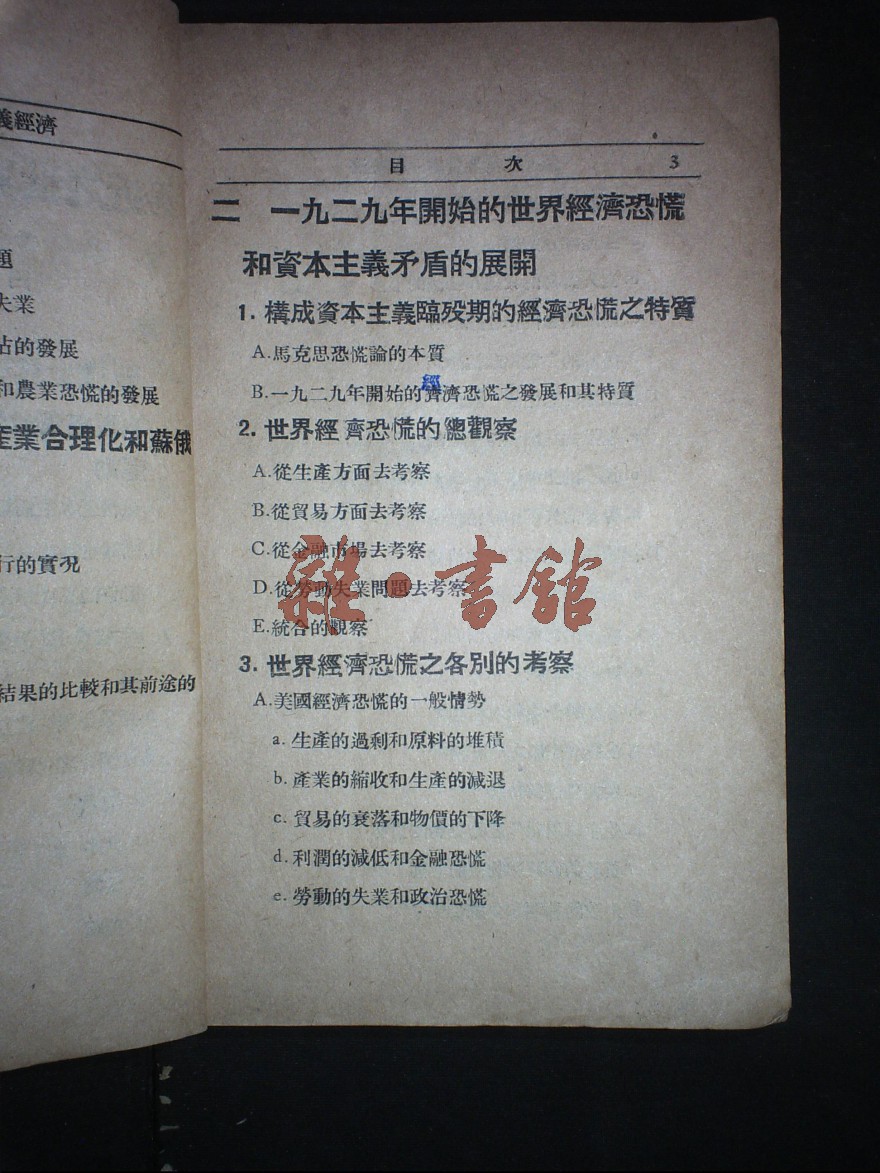 義經濟
題
失業
占的發展
和農業恐慌的發展
產業合理化和蘇俄
行的實况
結果的比較和其前途的
目 次 3
二 一九二九年開始的世界經濟恐慌
和資本主義矛盾的展開
1. 構成資本主義臨歿期的經濟恐慌之特質
A.馬克思恐慌論的本質
B.一九二九年開始的經濟濟恐慌之發展和其特質
2. 世界經濟恐慌的總觀察
A.從生產方面去考察
B.從貿易方面去考察
C.從金融市場去考察
D.從勞動失業問題去考察
E.統合的觀察
雜·書館
3. 世界經濟恐慌之各別的考察
A.美國經濟恐慌的一般情勢
a. 生產的過剩和原料的堆積
b. 產業的縮收和生產的減退
c. 貿易的衰落和物價的下降
d. 利潤的減低和金融恐慌
e. 勞動的失業和政治恐慌